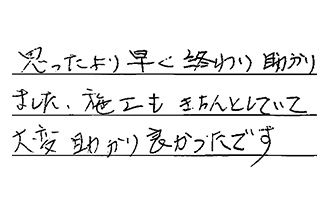 思ったより早く終わり助かり
ました、施工もきちんとしていて
大変助かり良かったです